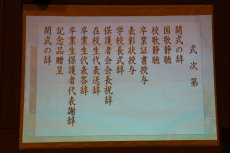 式次第
開式の辞
国歌静聴
校歌静聴
卒業証書授与
表彰状授与
学校長式辞
保護者会会長祝辞
在校生代表送辞
卒業生代表答辞
卒業生保護者代表謝辞
記念品贈呈
閉式の辞